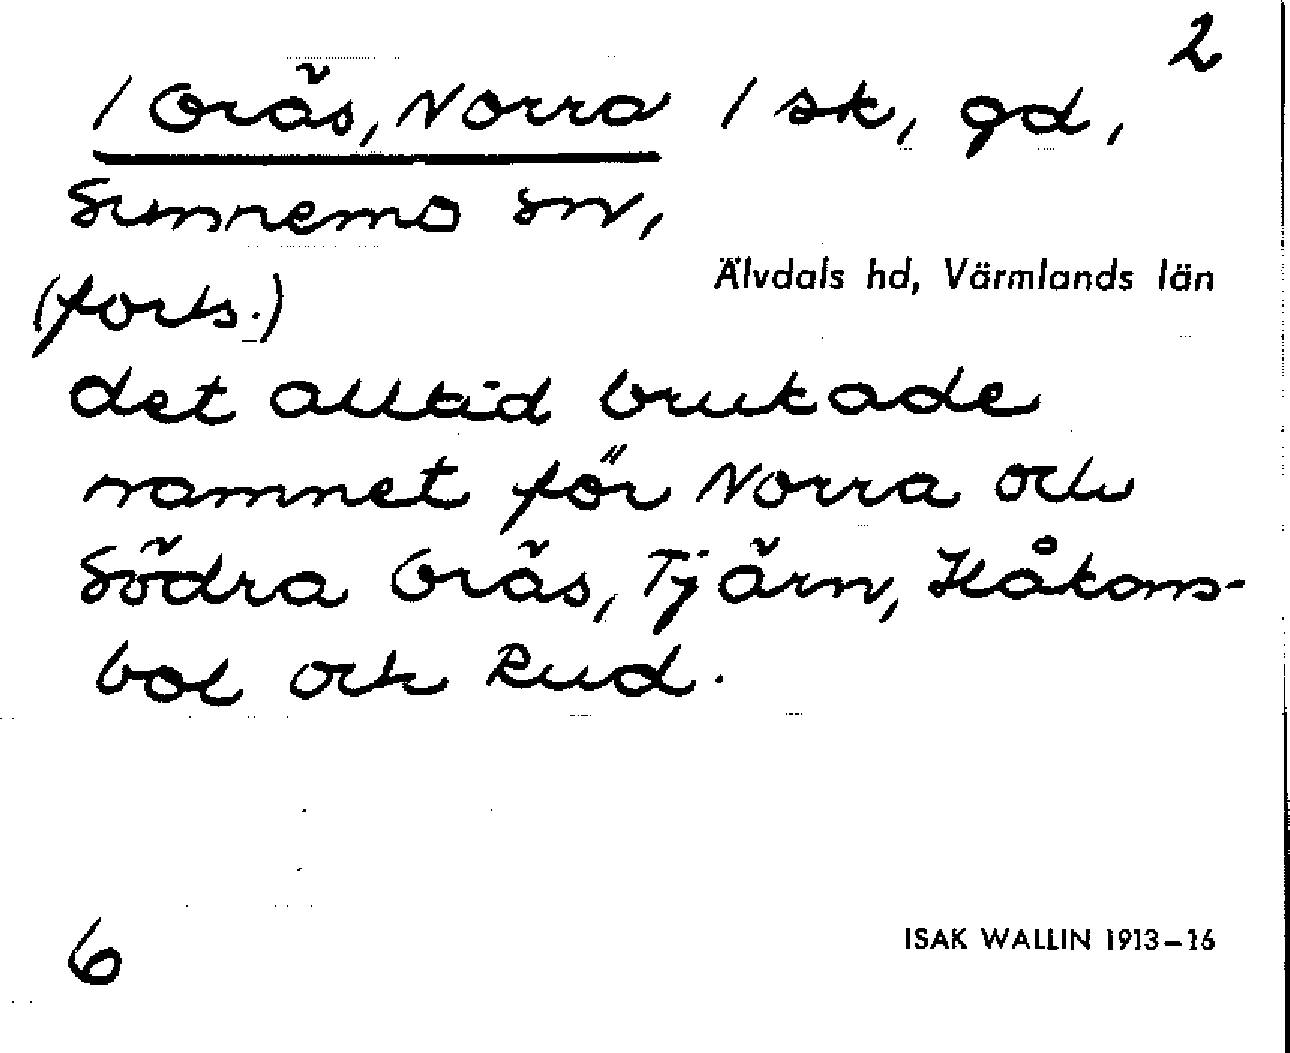 2
/ Gräs, Norra / sk, gd,
Sunnemo sn,
Älvdals hd, Värmlands län
(forts.)
det alltid brukade
namnet för Norra och
Södra Gräs, Tjärn, Håkans-
bol och Rud.
6
ISAK WALLIN 1913–16